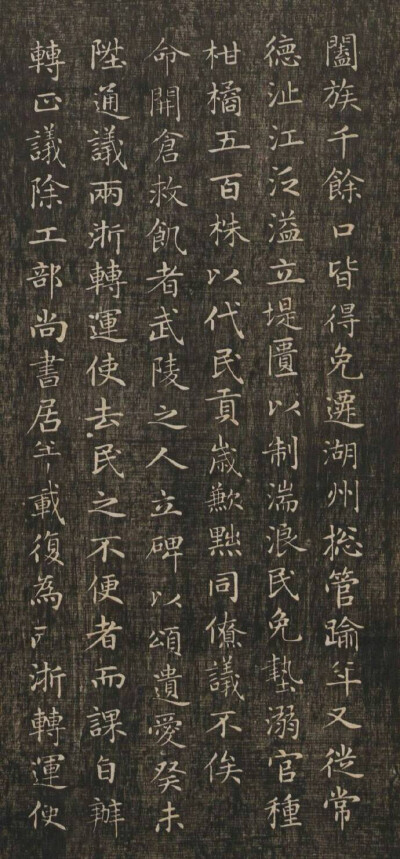 闔族千餘口皆得免遷湖州揔管踰年又從常
德沚江泛溢立堤匱以制湍浪民免墊溺官種
柑橘五百株以代民貢歲歉黜同僚議不俟
命開倉救飢者武陵之人立碑以頌遺愛癸未
陞通議兩浙轉運使去民之不便者而課自辦
轉正議除工部尚書居半載復為兩浙轉運使